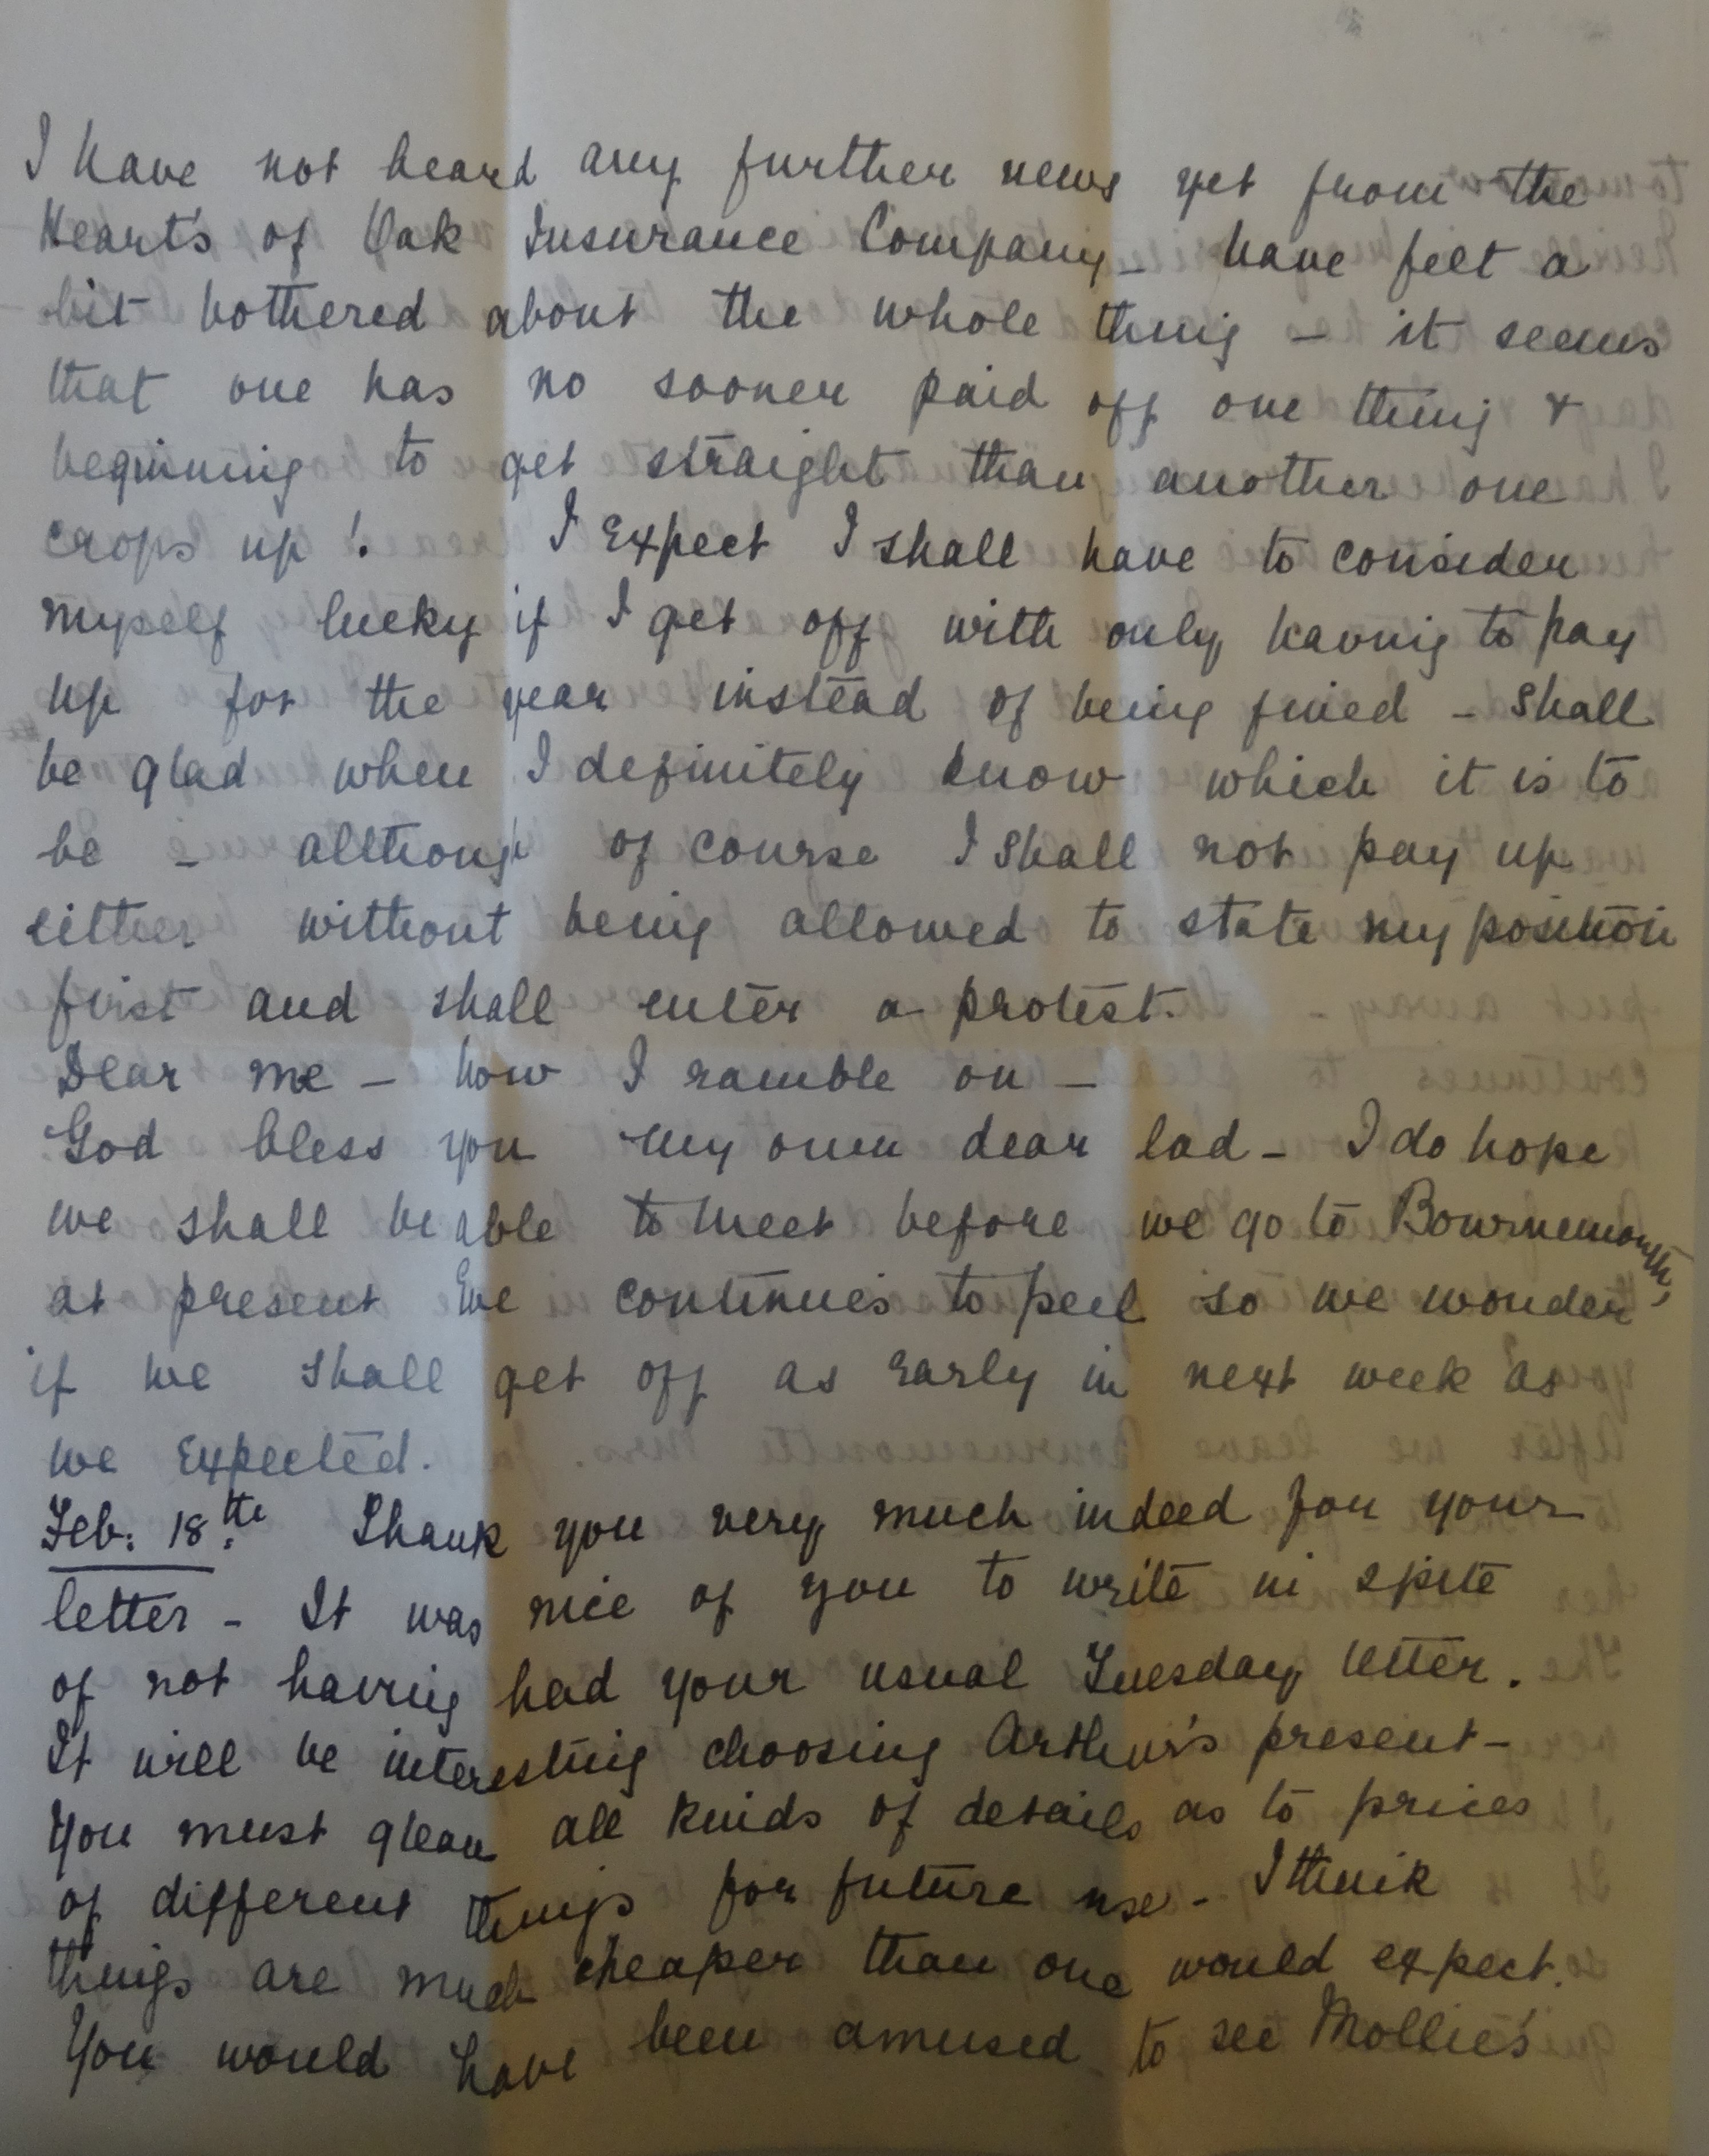 I have not heard any further news yet from the
Heart's of Oak Insurance Company - have felt a
bit bothered about the whole thing - it seems
that one has no sooner paid off one thing &
beginning to get straight than another one
crops up! I expect I shall have to consider
myself lucky if I get off with only having to pay
up for the year instead of being fined - shall
be glad when I definitely know which it is to
be - although of course I shall not pay up
either without being allowed to state my position
first and shall enter a protest.
Dear me - how I ramble on -
God bless you my own dear lad - I do hope
we shall be able to meet before we go to Bournemouth,
at present Eve continues to peel so we wonder
if we shall get off as early in next week as
we expected.
Feb: 18th. Thank you very much indeed for your
letter - It was nice of you to write in spite
of not having had your usual Tuesday letter.
It will be interesting choosing Arthur's present -
You must glean all kinds of details as to prices
of different things for future use - I think
things are much cheaper than one would expect.
You would have been amused to see Mollie's